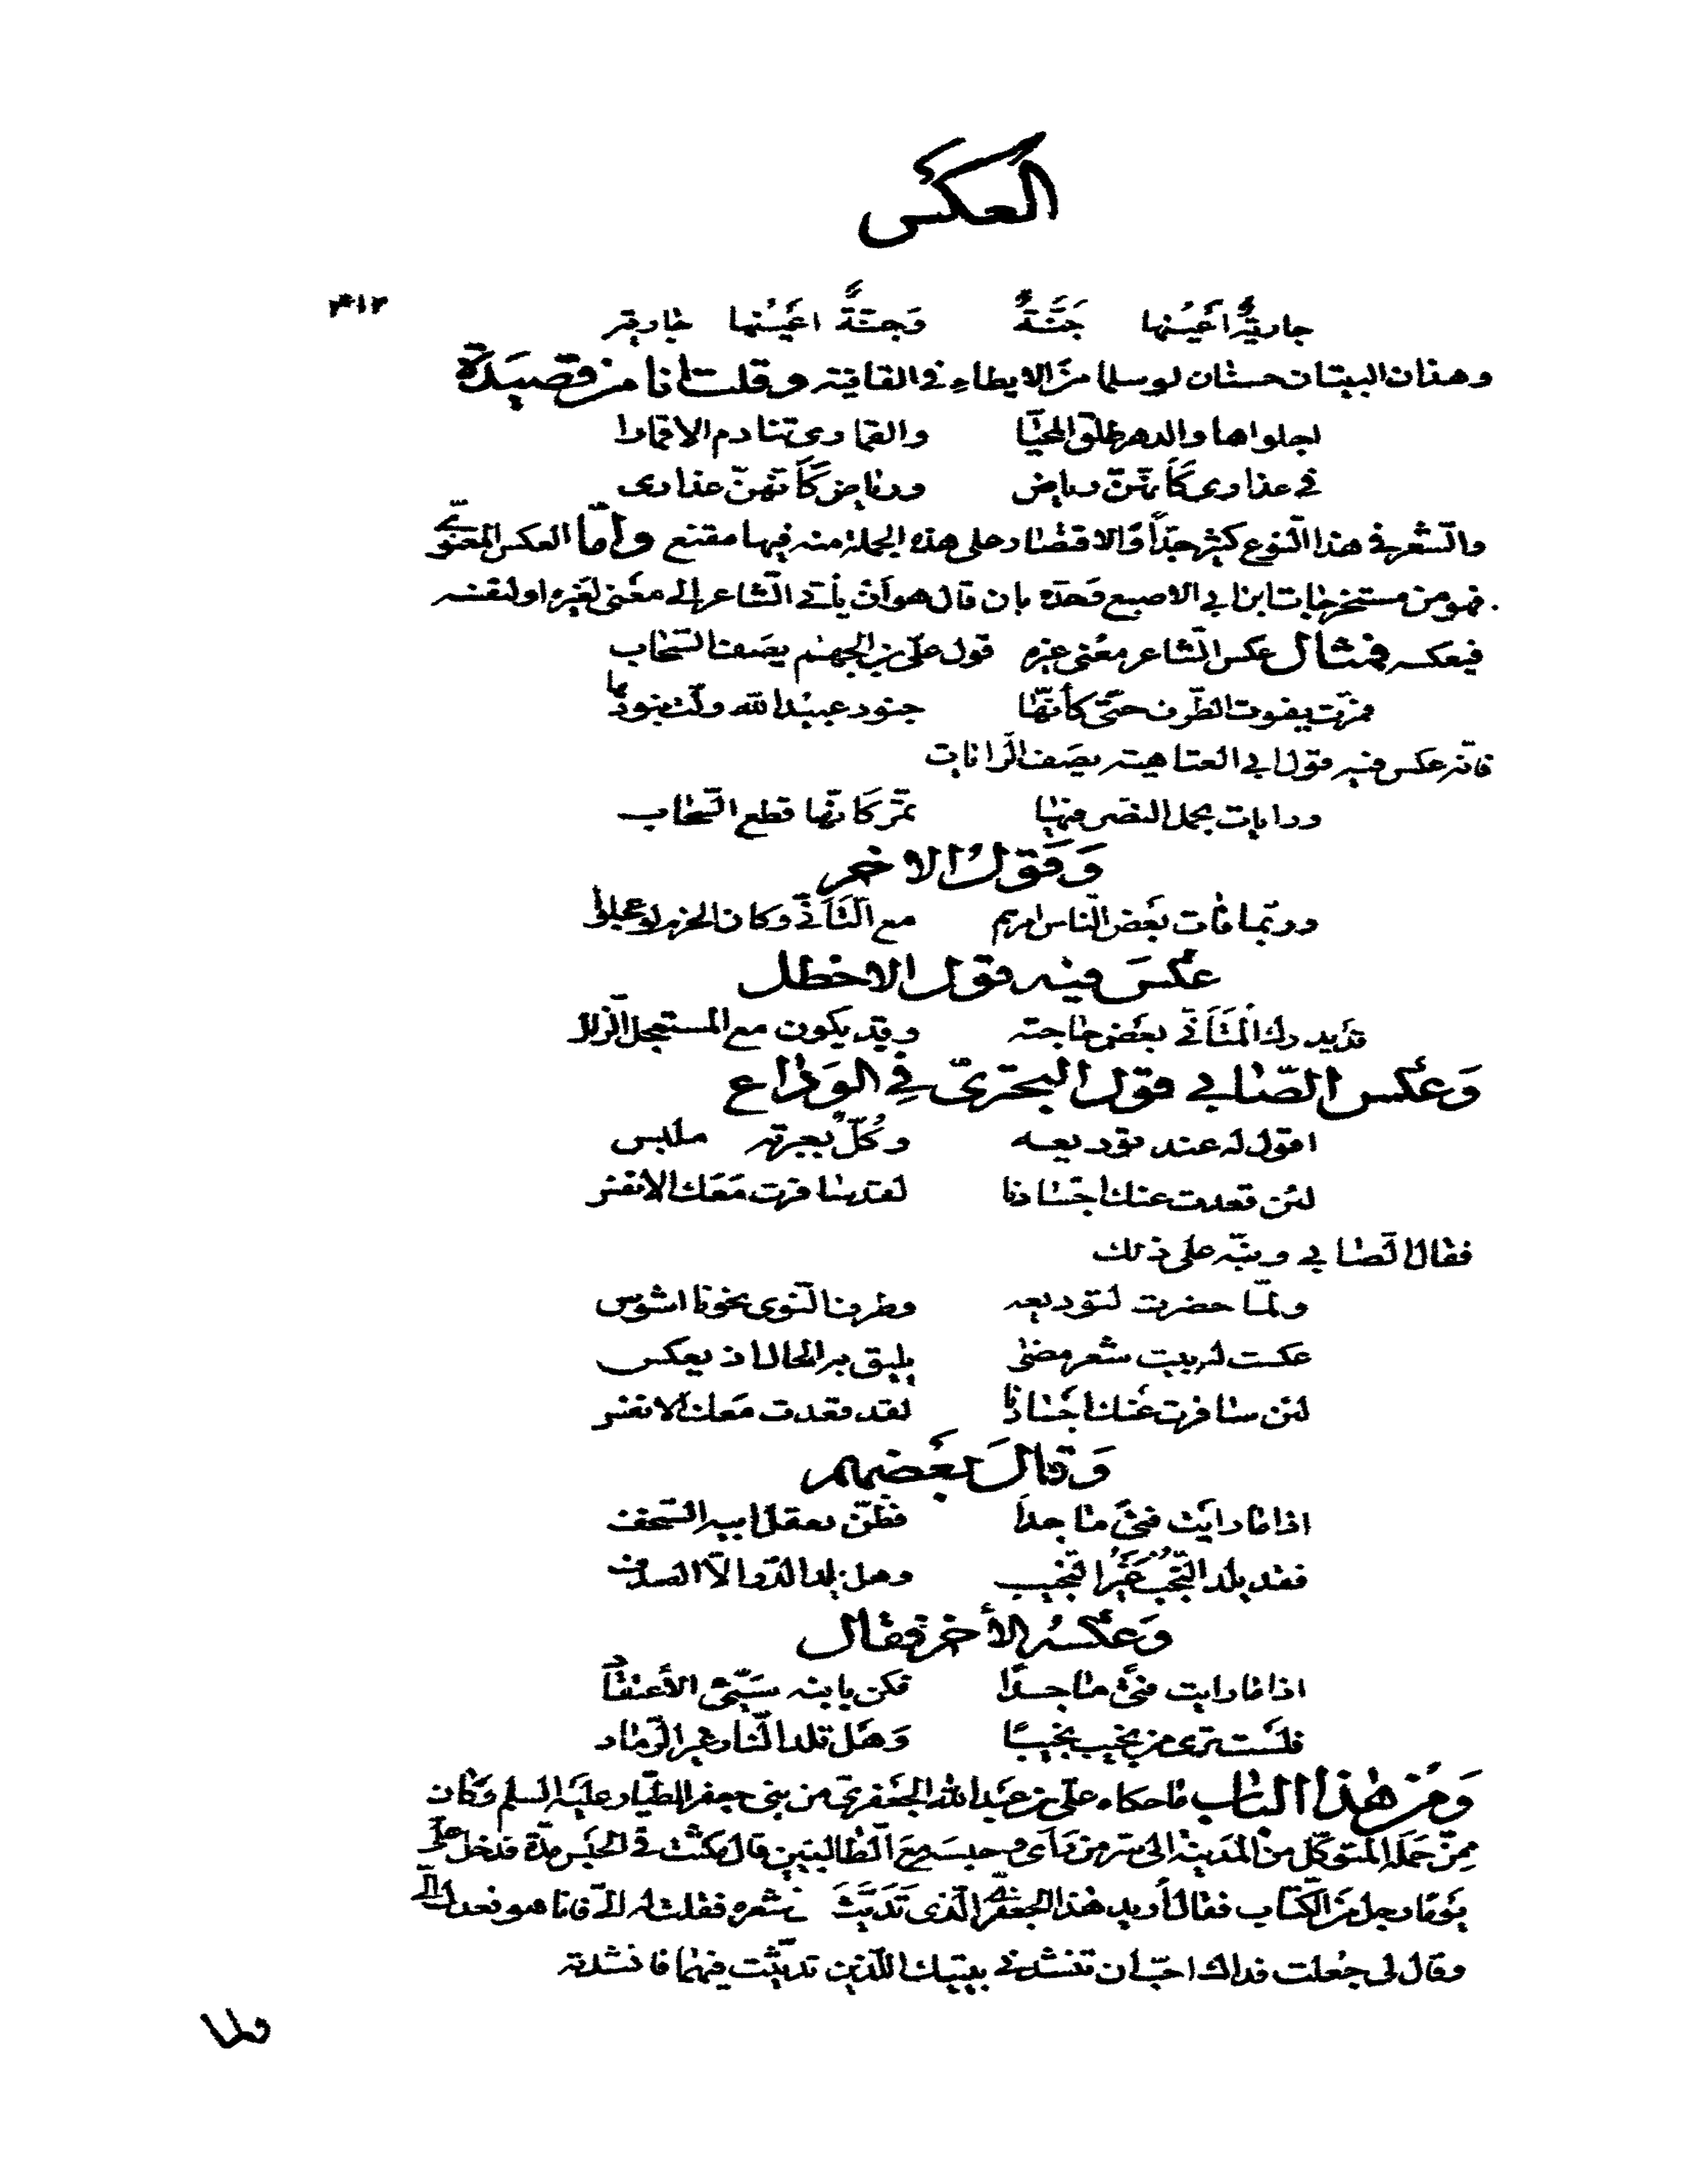 العكس
٣١٢
جاريةٌ اعينها جَنَّةٌ وَجنّةٌ اعينها جاريه
وهذان البيتان حسنان لو سلما من الايطاء في القافيه وقلت انا من قصيدة
اجلواها والدهر طلق المحيّا والقمارى تنادم الاقمارا
في عذارى كَأنّهنّ رياض ورياض كَأنّهنّ عذارى
والشّعر في هذا النّوع كثير جدّاً والاقتصار على هذه الجملة منه فيها مقنع وامّا العكس المعنوىّ
فهو من مستخرجات ابن ابي الاصبع فحدّه بان قال هو أن يأتى الشّاعر إلى معنى لغيره او لنفسه
فيعكسه فمثال عكس الشّاعر معنى غيره قول علىّ بن الجهم يصف السّحاب
فمرّت يفوت الطّرف حتّى كأنّها جنود عبيد الله ولّت بنودها
فانّه عكس فيه قول ابي العتاهيه يصف الرّايات
ورايات يحمل النصر فيها تمرّ كَانّها قطع السّحاب
وَقول الاخر
وربّما فات بعض النّاس امرهم مع التّأنّى وكان الحزم لو عجلوا
عكسَ فيه قول الاخطل
قد يدرك المتأنّى بعض حاجته وقد يكون مع المستعجل الزّلل
وَعكس الصّابي قول البحترىّ في الوَداع
اقول له عند توديعه وكُلٌّ بعبرته ملبس
لئن قعدت عنك اجسادنا لقد سافرت مَعَك الانفس
فقال الصّابي ونبّه على ذلك
ولمّا حضرت لتوديعه وطرف النّوى نحونا اشوس
عكست له بيت شعر مضى يليق به الحال اذ يعكس
لئن سافرت عَنك اجسادنا لقد قعدت مَعك الانفس
وَقالَ بعضهم
اذا ما رايت فتىً ماجداً فظنّ بعقل ابيه السّخف
فقد يلد النّجب غير النّجيب وهل يلد الدّر الاّ الصدف
وَعكسه الأخر فقال
اذا ما رايت فتىً ماجداً فكن بابنه سيّئ الأعتقاد
فلست ترى من نجيب نجيبًا وَهَل تلد النّار غير الرّماد
وَمن هذا الباب ما حكاه علىّ بن عبد الله الجعفرىّ من بنى جعفر الطيّار عليه السلم وَكان
ممّن حَمَله المتوكّل من المدينة الى سرّ من رَأى وحبسَه مَعَ الطّالبيّين قال مكثت في الحبس مدّة فدخل علىّ
يَومًا رجل من الكتّاب فقال أريد هذا الجعفرىّ الّذى تَدَيَّثَ في شعره فقلت له الىّ فانا هو فعدل الىّ
وقال لى جُعلت فداك احبّ ان تنشدنى بيتيك اللّذين تديّثت فيهما فانشدته
ولما